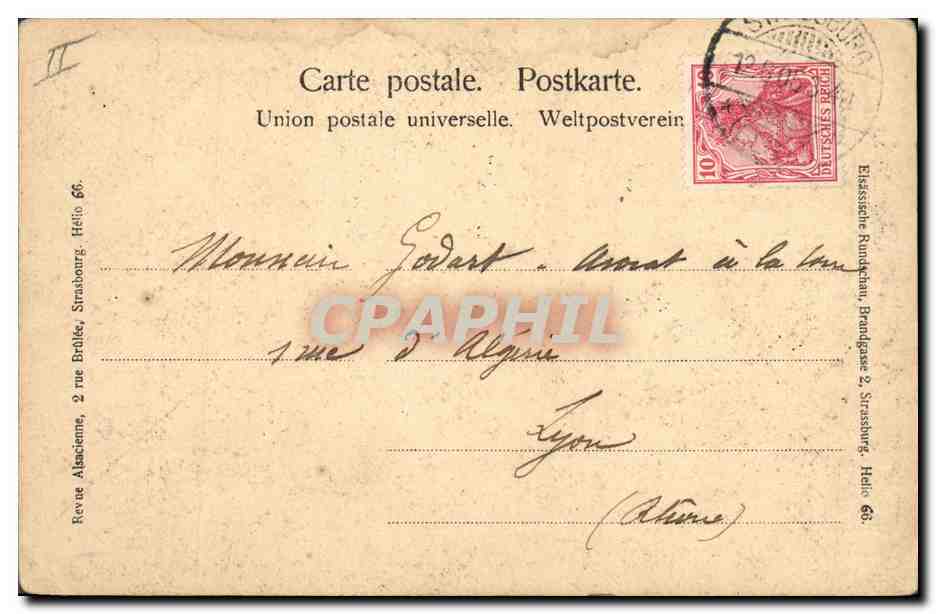 II
Carte postale. Postkarte.
Union postale universelle. Weltpostverein
STRASSBURG
10
DEUTSCHES REICH
Revue Alsacienne, 2 rue Brûlée, Strasbourg. Hélio 66.
Elsässische Rundschau, Brandgasse 2, Strassburg. Helio 66.
Monsieur Godart - Avocat à la Cour
1 rue d'Algérie
Lyon
(Rhône)
CPAPHIL